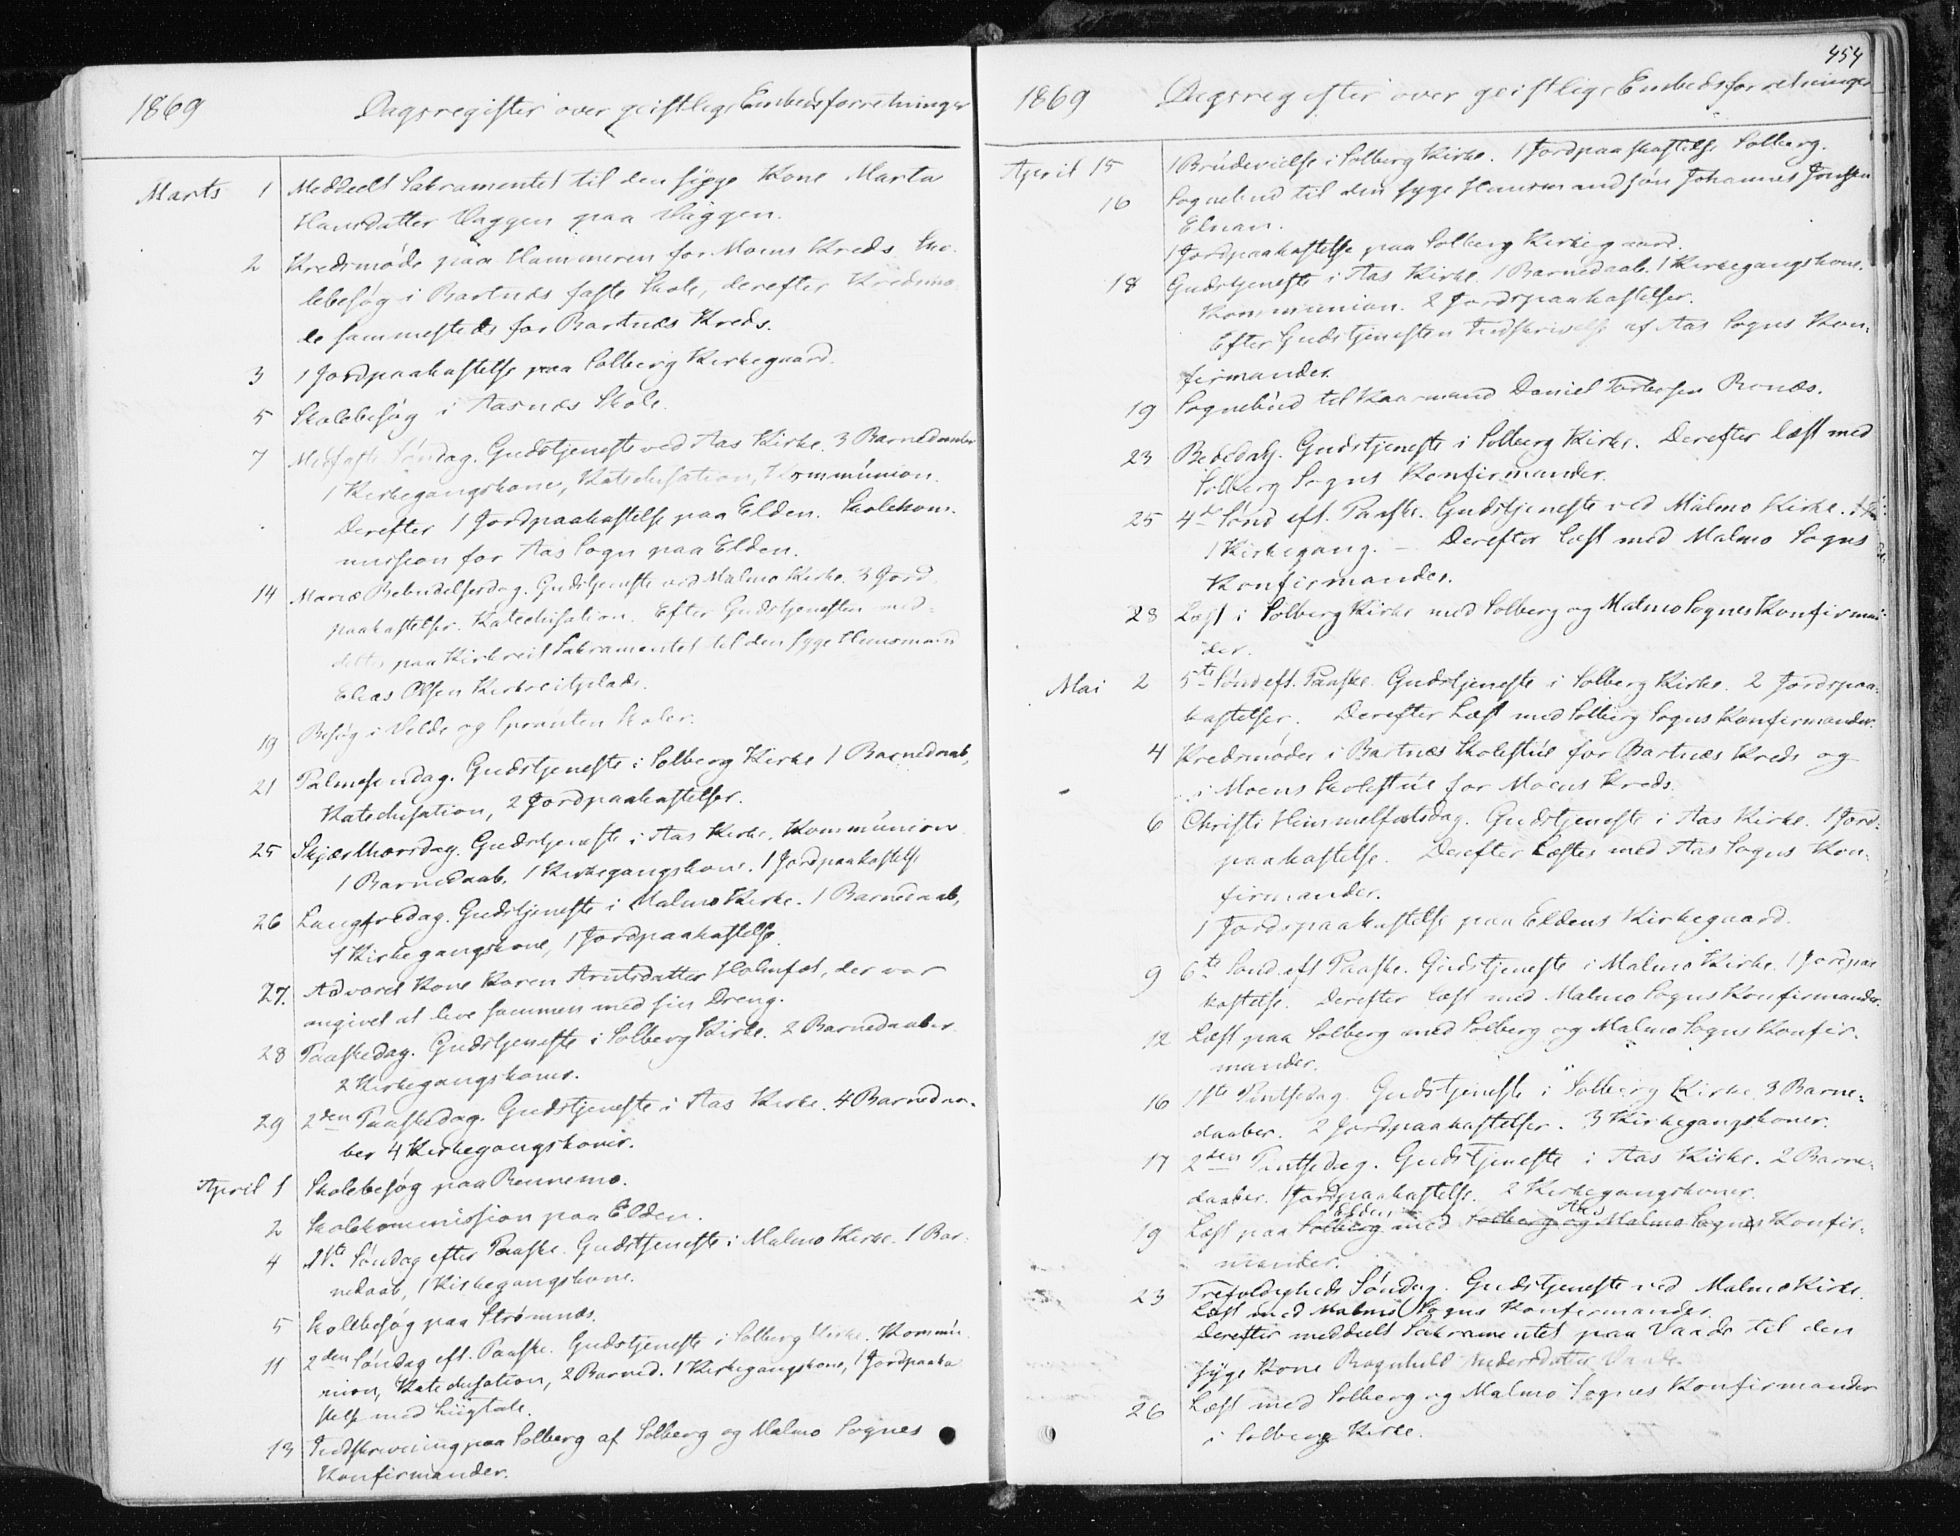 1869 Dagsregister over geistlige Embedsforretninger
Marts 1 Meddeelt Sakramentet til den syge Kone Marta
Hansdatter Vaggen paa Vaggen.
2 Kredsmøde paa Hammeren for Moens Kreds. Sko-
lebesøg i Bartnæs faste Skole, derefter Kredsmø-
de sammesteds for Bartnæs Kreds.
3 1 Jordpaakastelse paa Solberg Kirkegaard.
5 Skolebesøg i Aasnæs Skole.
7 Midfaste Søndag. Gudstjeneste ved Aas Kirke. 3 Barnedaaber
1 Kirkegangskone, Katechisation, Kommúnion.
Derefter 1 Jordpaakastelse paa Elden. Skolekom-
mission for Aas Sogn paa Elden.
14 Mariæ Bebudelsesdag. Gudstjeneste ved Malmo Kirke. 3 Jord-
paakastelser. Katechisation. Efter Gudstjenesten med-
deltes paa Kirkreit Sakramentet til den syge Huusmand
Elias Olsen Kirkreitplads.
19 Besøg i Velde og Sprauten Skoler.
21 Palmesøndag. Gudstjeneste i Solberg Kirke 1 Barnedaab,
Katechisation, 2 Jordpaakastelser.
25 Skjærthorsdag. Gudstjeneste i Aas Kirke. Kommúnion
1 Barnedaab, 1 Kirkegangskone. 1 Jordpaakastelse
26 Langfredag. Gudstjeneste i Malmo Kirke. 1 Barnedaab,
1 Kirkegangskone, 1 Jordpaakastelse.
27. Advaret Kone Karen Arntsdatter, der var
angivet at leve sammen med sin Dreng.
28 Paaskedag. Gudstjeneste i Solberg Kirke. 2 Barnedaaber
2 Kirkegangskoner.
29 2den Paaskedag. Gudstjeneste i Aas Kirke. 4 Barnedaa-
ber 4 Kirkegangskoner.
April 1 Skolebesøg paa Rennemo.
2 Skolekommission paa Elden.
4 1ste Søndag efter Paaske. Gudstjeneste i Malmo Kirke. 1 Bar-
nedaab, 1 Kirkegangskone.
5 Skolebesøg paa Strømnæs.
11 2den Søndag eft. Paaske. Gudstjeneste i Solberg Kirke. Kommú-
nion, Katechisation, 2 Barned. 1 Kirkegangskone, 1 Jordpaaka-
stelse med Liigtale.
13 Indskrivning paa Solberg af Solberg og Malmo Sognes
Konfirmander.
454
1869 Dagsregister over geistlige Embedsforretninger
April 15 1 Brúdevielse i Solberg Kirke. 1 Jordpaakastelse Solberg.
16 Sognebud til den syge Huusmandsøn Johannes Jensen
Elnan.
1 Jordpaakastelse paa Solberg Kirkegaard.
18 Gudstjeneste i Aas Kirke. 1 Barnedaab. 1 Kirkegangskone.
Kommunion. 2 Jordspaakastelser.
Efter Gudstjenesten Indskrivelse af Aas Sogns Kon-
firmander.
19 Sognebúd til Kaarmand Daniel Torbersen Ronæs.
23 Bededag. Gudstjeneste i Solberg Kirke. Derefter læst med
Solberg Sogns Konfirmander.
25 4de Sønd. eft. Paaske. Gudstjeneste ved Malmo Kirke.
1 Kirkegang. — Derefter læst med Malmo Sogns
Konfirmander.
28 Læst i Solberg Kirke med Solberg og Malmo Sognes Konfirman-
der.
Mai 2 5te Sønd eft. Paaske. Gudstjeneste i Solberg Kirke. 2 Jordspaa-
kastelser. Derefter Læst med Solberg Sogns Konfirmander.
4 Kredsmøder i Bartnæs Skolestúe for Bartnæs Kreds og
i Moens Skolestúe for Moens Kreds.
6 Christi Himmelfartsdag. Gudstjeneste i Aas Kirke. 1 Jord-
paakastelse. Derefter Læstes med Aas Sogns Kon-
firmander.
1 Jordspaakastelse paa Eldens Kirkegaard.
9 6te Sønd. eft Paaske. Gudstjeneste i Malmo Kirke. 1 Jordpaa-
kastelse. Derefter læst med Malmo Sogns Konfirmander.
12 Læst paa Solberg med Solberg og Malmo Sognes Konfir-
mander.
16 1ste Pintsedag. Gudstjeneste i Solberg Kirke 3 Barne-
daaber. 2 Jordpaakastelser. 3 Kirkegangskoner.
17 2den Pintsedag. Gudstjeneste i Aas Kirke. 2 Barne-
daaber. 1 Jordpaakastelse. 2 Kirkegangskoner.
Elden Aas
19 Læst paa Solberg med Solberg og Malmo Sognes Konfir-
mander.
23 Trefoldigheds Søndag. Gudstjeneste ved Malmo Kirke.
Læst med Malmo Sogns Konfirmander.
Derefter meddeelt Sakramentet paa Vaade til den
syge Kone Ragnhild Andersdatter Vaade.
26 Læst med Solberg og Malmo Sognes Konfirmander
i Solberg Kirke.